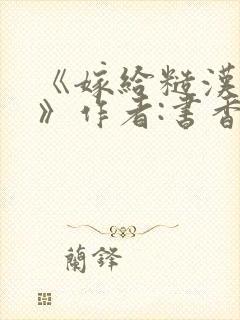 《嫁給糙漢
》作者:書香
蘭鋒